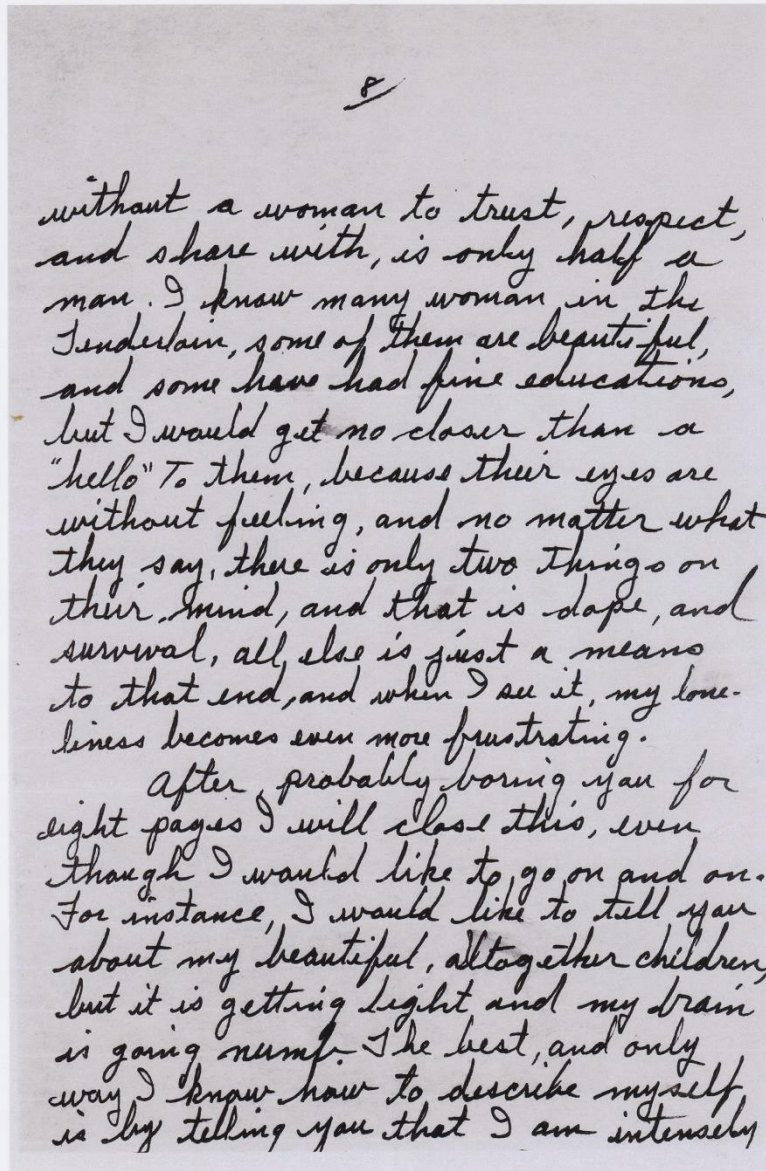 8
without a woman to trust, respect,
and share with, is only half a
man. I know many woman in the
Tenderloin, some of them are beautiful,
and some have had fine educations,
but I would get no closer than a
"hello" To them, because their eyes are
without feeling, and no matter what
they say, there is only two things on
their mind, and that is dope, and
survival, all else is just a means
to that end, and when I see it, my lone-
liness becomes even more frustrating.
After probably boring you for
eight pages I will close this, even
though I would like to go on and on.
For instance, I would like to tell you
about my beautiful, altogether children,
but it is getting light and my brain
is going numb. The best, and only
way I know how to describe myself
is by telling you that I am intensely